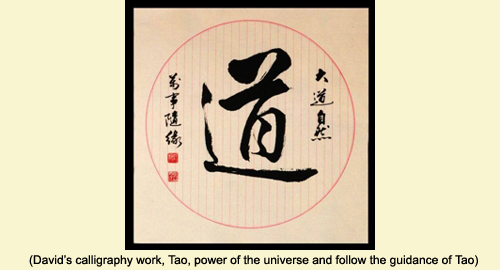 大道自然
道
萬事隨緣
(David's calligraphy work, Tao, power of the universe and follow the guidance of Tao)